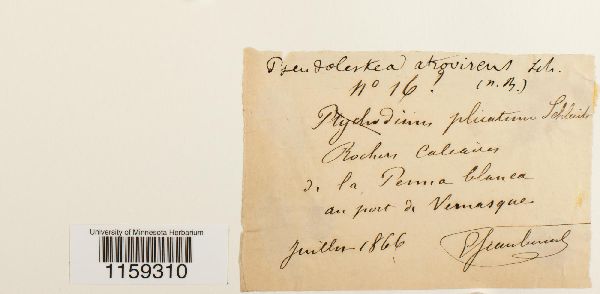 Pseudoleskea atrovirens Sch.
no 16? (n. B.)
Ptychodium plicatum Schleich
Rochers calcaires
de la Penna blanca
au port de Venasque
Juillet 1866
University of Minnesota Herbarium
1159310